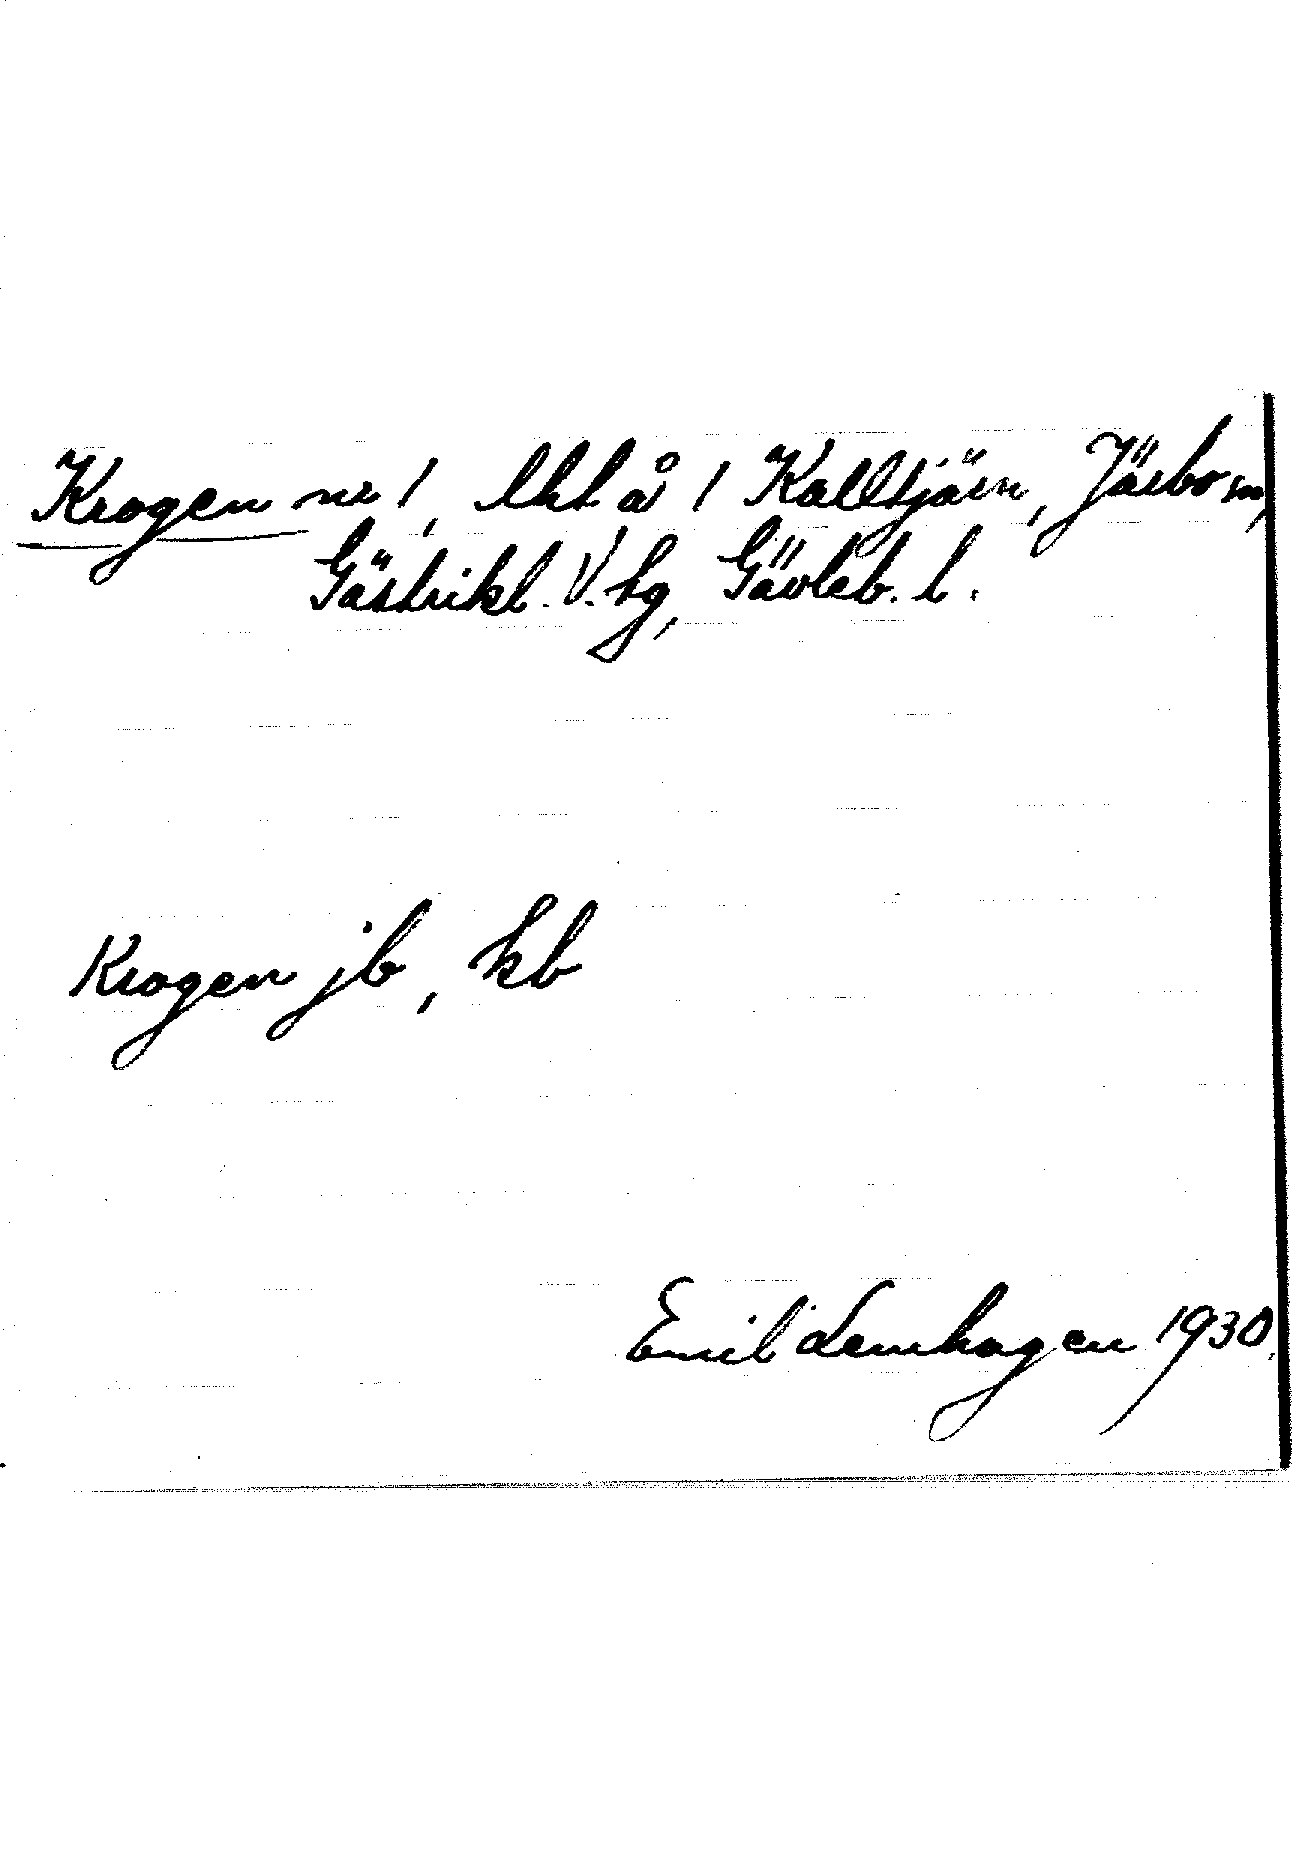 Krogen nr 1, lht å 1 Kalltjärn, Järbo sn,
Gästrikl. V. tg, Gävleb. l.
Krogen jb, kb
Emil Lemhagen 1930.